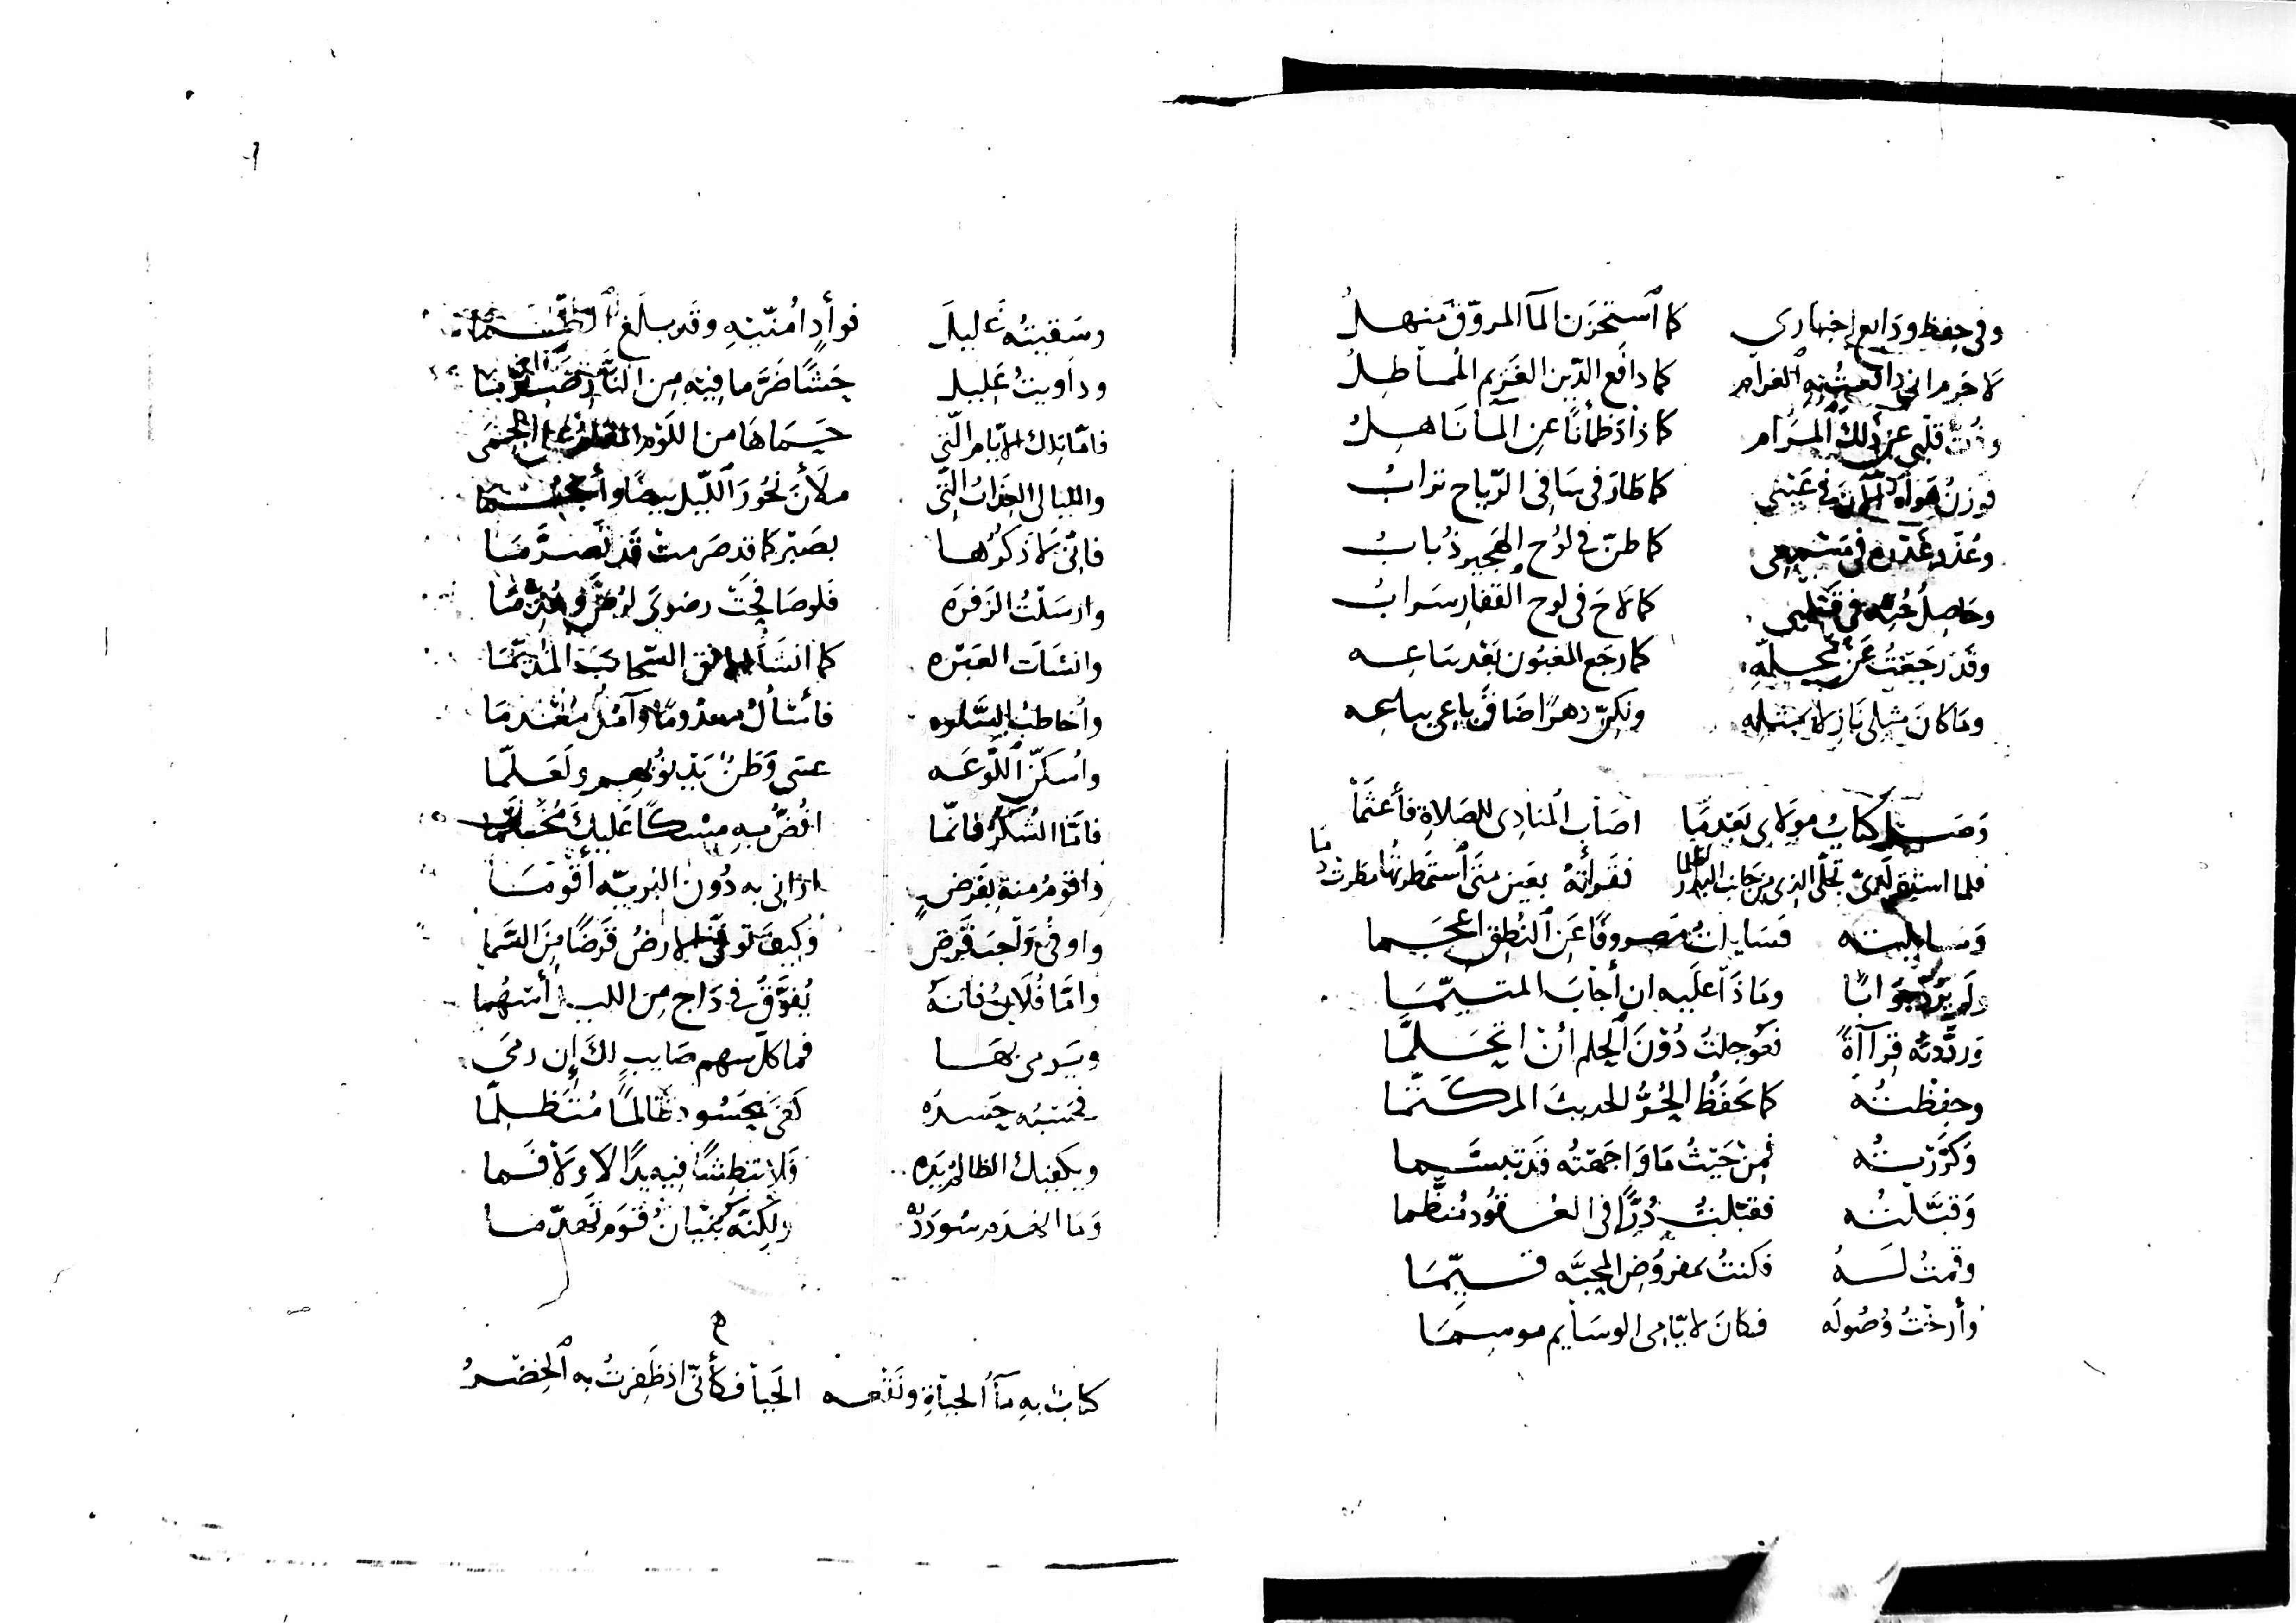 وفي حفظ ودائع اخباري كما ٱستخزن المآ المروّق منهلُ
لا جرم اني الغرام كما دافع الدّين الغريم المماطلُ
قلبي عن ذلك المرام كما ذاد ظمآنًا عن المآ ناهلُ
في عيني كما طار في سافي الرّياح ترابُ
في مسمعي كما طنّ في لوح الهجير ذُبابُ
وحاصلُ في قلبي كما لاح في لوح القفار سرابُ
وقد رجعتُ عن كما رجع المغبون بعد بياعه
وما كان مثلي نازلا بمثله ولكنّ دهرًا ضاق باعي بباعه
وصل كتابُ مولاي بعد ما اصاب المنادي للصلاة فأعتما
فلما استقر لديّ تجلّى الذي من جانب البدر اظلما فقرأتهُ بعين متى ٱستمطرتها مطرت دما
وسايلته فسايلتُ مصروفًا عن ٱلنُطق اعجما
ولم يردّ جوابًا وماذا عليه ان أجاب المتيّما
وردّدته قرآآةً فعوجلتُ دُون ٱلحلم أنْ اتحلّما
وحفظتُه كما يحفظُ الحُرُّ الحديث المكتّما
وكرّرتُه فمن حيثُ ما واجهتُه قد تبسّما
وقبّلتُه فقبّلتُ دُرًّا في العُقُود مُنظّما
وقمتُ له فكنتُ بمفروُض المحبّه قيّما
وأرختُ وُصُوله فكان لايّامي الوسايم موسما
وسقيتهُ غليل فوأدٍ امُنّيه وقد بلغ الظما
وداويتُ عليل حشًا ضرّ ما فيه من النار
فامّا تلك الايّام الّتي حماها من اللوم على الحمى
والليالي العِذابُ الّتي ملأن نحُور ٱلليل بيضًا وأنجما
فاني لاذكرُها بصبر كما قد صرمت قد تصرّما
وارسلتُ الزفره فلو صافحت رضوى لرضّ وهدّما
وانشأت العبره كما انشأ الافق السّحاب المُديّما
وأُخاطبُ السّلوه فأسألُ معدُومًا وآملُ مُعْدما
واسكنّ ٱللّوعه عسى وطنٌ يدنو بهم ولعلّما
فامّا الشُكرُ فانّما افُضُّ به مسكًا عليك مُختّما
واقومُ منه بفرضٍ اراني به دُون البريّه أقوما
واوفي واجب قرض وكيف توفّي الارضُ قرضًا من السّما
وامّا فُلانٌ فانهُ يُفوّقُ في داج من الليل أسهُما
ويرمى بها فما كلّ سهم صايبٍ لك إن رمى
فحسبُه حسدُه كفى بحسودٍ ظالمًا مُتظلّما
ويكفيك الظالمُ يده فلا تبطشًا فيه يدًا لا ولا فما
وما انهدم سوددُه ولكنّه بُنيانُ قوم تهدّما
كتابٌ به مآءُ الحياةِ ونقعه الحيا فكأنّي اذ ظفرتُ به ٱلخضرُ